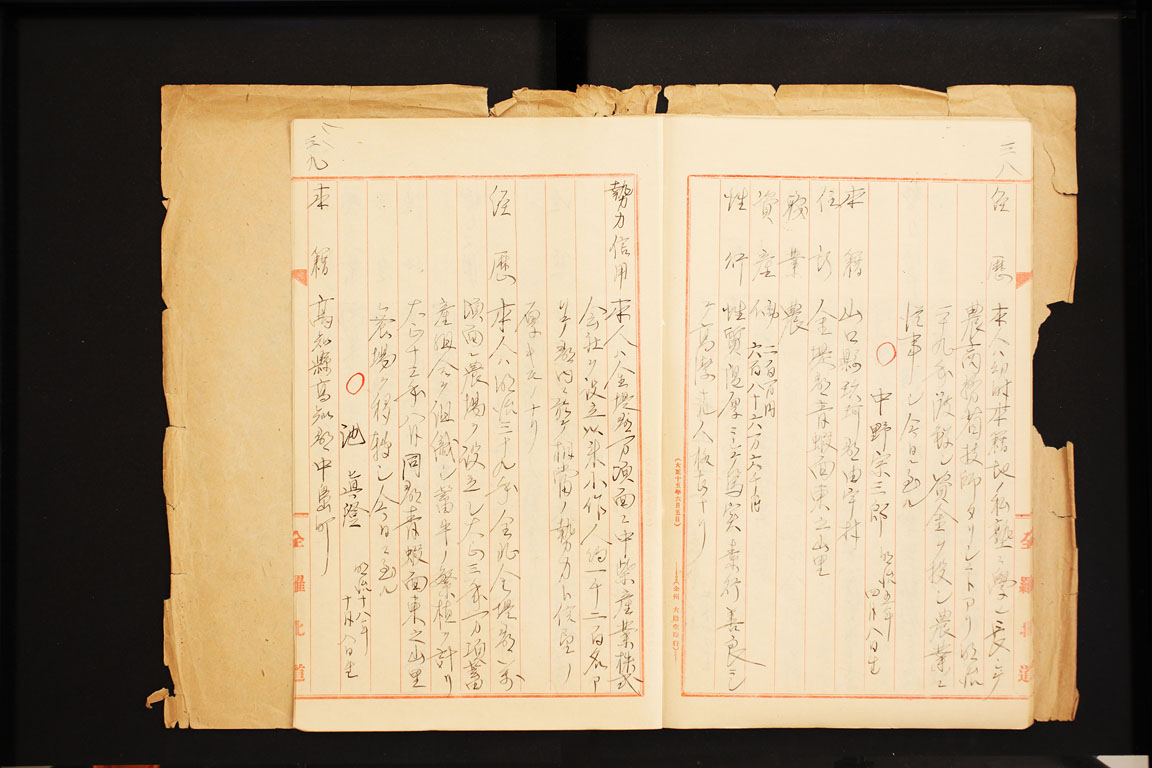 三八
経歴 本人ハ幼时本籍地ノ私塾ニ学ヒ長シテ
農商務省技師タリシコトアリ明治
三十九年渡鮮シ資金ヲ投シ農業ニ
従事シ今日ニ至ル
○ 中野宗三郎 明治十五年四月八日生
本籍 山口縣玖珂郡由宇村
住所 金堤郡青蝦面東之山里
職業 農
資産 二百万円
六百八十六万六千円
性行 性質温厚ニシテ篤実素行善良ニシ
(大正十五年六月五日)
全羅北道
三九
勢力信用 本人ハ金堤郡万頃面ニ中柴産業株式
会社ヲ設立以来小作人約一千二百名ア
リテ郡内ニ於テ相当ノ勢力ト信望ノ
厚キモノナリ
経歴 本人ハ明治三十九年全北金堤郡万
頃面ニ農場ヲ設立シ大正三年万頃畜
産組合ヲ組織シ畜牛ノ繁植ヲ計リ
大正十三年八月同郡青蝦面東之山里
ニ農場ヲ移轉シ今日ニ至ル
○ 池 眞澄 明治十八年十月八日生
本籍 高知縣高知郡中島町
全羅北道